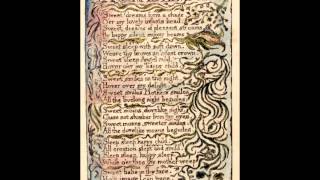 Sweet dreams form a shade
O'er my lovely infants head.
Sweet dreams of pleasant streams
By happy silent moony beams
Sweet sleep with soft down,
Weave thy brows an infant crown.
Sweet sleep Angel mild,
Hover o'er my happy child.
Sweet smiles in the night,
Hover over my delight.
Sweet smiles Mothers smiles
All the livelong night beguiles.
Sweet moans dovelike sighs
Chase not slumber from thy eyes
Sweet moans, sweeter smiles
All the dovelike moans beguiles.
Sleep sleep happy child.
All creation slept and smil'd.
Sleep sleep, happy sleep,
While o'er thee thy mother weep
Sweet babe in thy face,
Holy image I can trace.